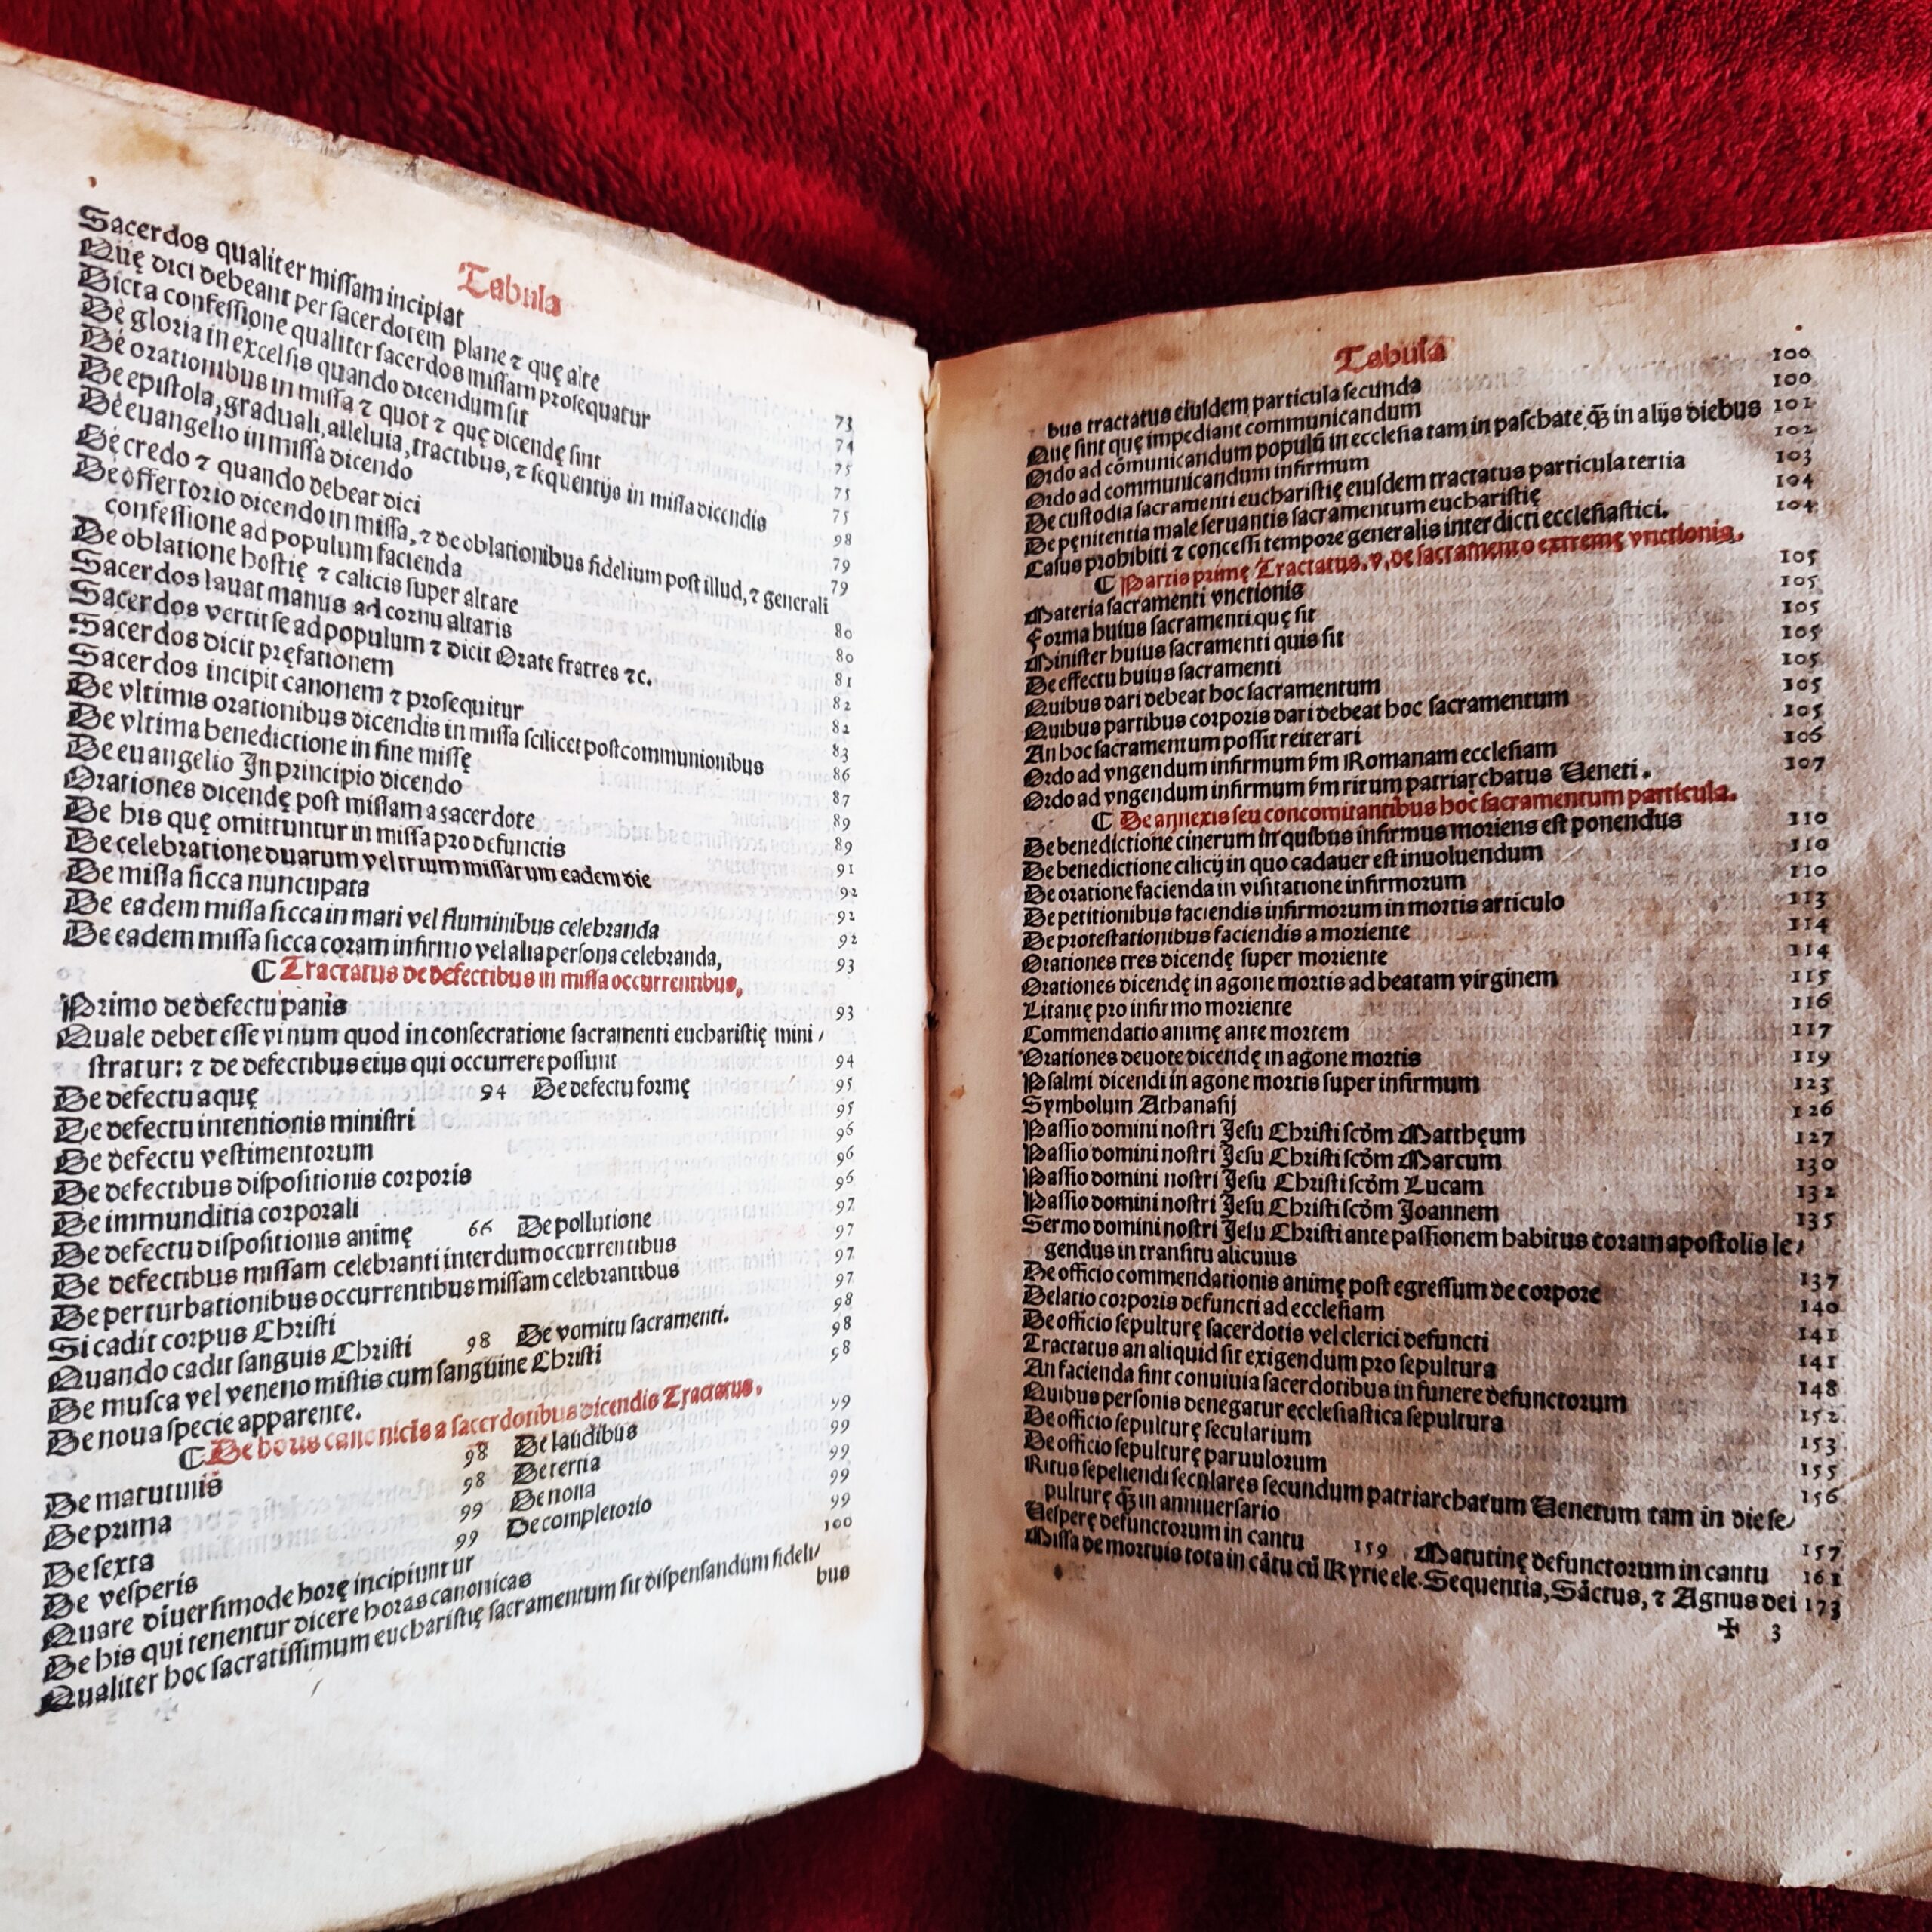 Tabula
Sacerdos qualiter missam incipiat 73
Quę dici debeant per sacerdotem plane ⁊ quę alte 74
Dicta confessione qualiter sacerdos missam prosequatur 75
De gloria in excelsis quando dicendum sit 75
De orationibus in missa ⁊ quot ⁊ quę dicendę sint 75
De epistola, graduali, alleluia, tractibus, ⁊ sequentijs in missa dicendis 98
De euangelio in missa dicendo 79
De credo ⁊ quando debeat dici 79
De offertorio dicendo in missa, ⁊ de oblationibus fidelium post illud, ⁊ generali
confessione ad populum facienda 80
De oblatione hostię ⁊ calicis super altare 80
Sacerdos lauat manus ad cornu altaris 81
Sacerdos vertit se ad populum ⁊ dicit Orate fratres ⁊c. 82
Sacerdos dicit pręfationem 82
Sacerdos incipit canonem ⁊ prosequitur 83
De vltimis orationibus dicendis in missa scilicet postcommunionibus 86
De vltima benedictione in fine missę 87
De euangelio In principio dicendo 89
Orationes dicendę post missam a sacerdote 89
De his quę omittuntur in missa pro defunctis 91
De celebratione duarum vel trium missarum eadem die 92
De missa sicca nuncupata 92
De eadem missa sicca in mari vel fluminibus celebranda 92
De eadem missa sicca coram infirmo vel alia persona celebranda, 93
☾ Tractatus de defectibus in missa occurrentibus,
Primo de defectu panis 93
Quale debet esse vinum quod in consecratione sacramenti eucharistię mini/
stratur: ⁊ de defectibus eius qui occurrere possunt 94
De defectu aquę 94 De defectu formę 95
De defectu intentionis ministri 95
De defectu vestimentorum 96
De defectibus dispositionis corporis 96
De immunditia corporali 96
De defectu dispositionis animę 66 De pollutione 97
De defectibus missam celebranti interdum occurrentibus 97
De perturbationibus occurrentibus missam celebrantibus 97
Si cadit corpus Christi 97
Quando cadit sanguis Christi 98 De vomitu sacramenti. 98
De musca vel veneno mistis cum sanguine Christi 98
De noua specie apparente. 98
☾ De horis canonicis a sacerdotibus dicendis Tractatus.
De matutinis 98 De laudibus 99
De prima 98 De tertia 99
De sexta 99 De nona 99
De vesperis 99 De completorio 99
Quare diuersimode horę incipiuntur 99
De his qui tenentur dicere horas canonicas 100
Qualiter hoc sacratissimum eucharistię sacramentum sit dispensandum fideli/
bus
Tabula
bus tractatus eiusdem particula secunda 100
Quę sint quę impediant communicandum 100
Ordo ad cōmunicandum populū in ecclesia tam in paschate q̄ꝫ in alijs diebus 101
Ordo ad communicandum infirmum 102
De custodia sacramenti eucharistię eiusdem tractatus particula tertia 103
De pęnitentia male seruantis sacramentum eucharistię 104
Casus prohibiti ⁊ concessi tempore generalis interdicti ecclesiastici. 104
☾ Partis primę Tractatus. v, de sacramento extremę vnctionis.
Materia sacramenti vnctionis 105
Forma huius sacramenti quę sit 105
Minister huius sacramenti quis sit 105
De effectu huius sacramenti 105
Quibus dari debeat hoc sacramentum 105
Quibus partibus corporis dari debeat hoc sacramentum 105
An hoc sacramentum possit reiterari 105
Ordo ad vngendum infirmum ẜm Romanam ecclesiam 106
Ordo ad vngendum infirmum ẜm ritum patriarchatus Ueneti. 107
☾ De annexis seu concomitantibus hoc sacramentum particula.
De benedictione cinerum in quibus infirmus moriens est ponendus 110
De benedictione cilicij in quo cadauer est inuoluendum 110
De oratione facienda in visitatione infirmorum 110
De petitionibus faciendis infirmorum in mortis articulo 113
De protestationibus faciendis a moriente 114
Orationes tres dicendę super moriente 114
Orationes dicendę in agone mortis ad beatam virginem 115
Litanię pro infirmo moriente 116
Commendatio animę ante mortem 117
Orationes deuote dicendę in agone mortis 119
Psalmi dicendi in agone mortis super infirmum 123
Symbolum Athanasij 126
Passio domini nostri Jesu Christi scḋm Matthęum 127
Passio domini nostri Jesu Christi scḋm Marcum 130
Passio domini nostri Jesu Christi scḋm Lucam 132
Passio domini nostri Jesu Christi scḋm Joannem 135
Sermo domini nostri Jesu Christi ante passionem habitus coram apostolis le/
gendus in transitu alicuius 137
De officio commendationis animę post egressum de corpore 140
Delatio corporis defuncti ad ecclesiam 141
De officio sepulturę sacerdotis vel clerici defuncti 141
Tractatus an aliquid sit exigendum pro sepultura 148
An facienda sint conuiuia sacerdotibus in funere defunctorum 152
Quibus personis denegatur ecclesiastica sepultura 153
De officio sepulturę secularium 155
De officio sepulturę paruulorum 156
Ritus sepeliendi seculares secundum patriarchatum Uenetum tam in die se/
pulturę q̄ꝫ in anniuersario 157
Uesperę defunctorum in cantu 159 Matutinę defunctorum in cantu 161
Missa de mortuis tota in cātu cū Kyrieele. Sequentia, Sāctus, ⁊ Agnus dei 173
✠ 3